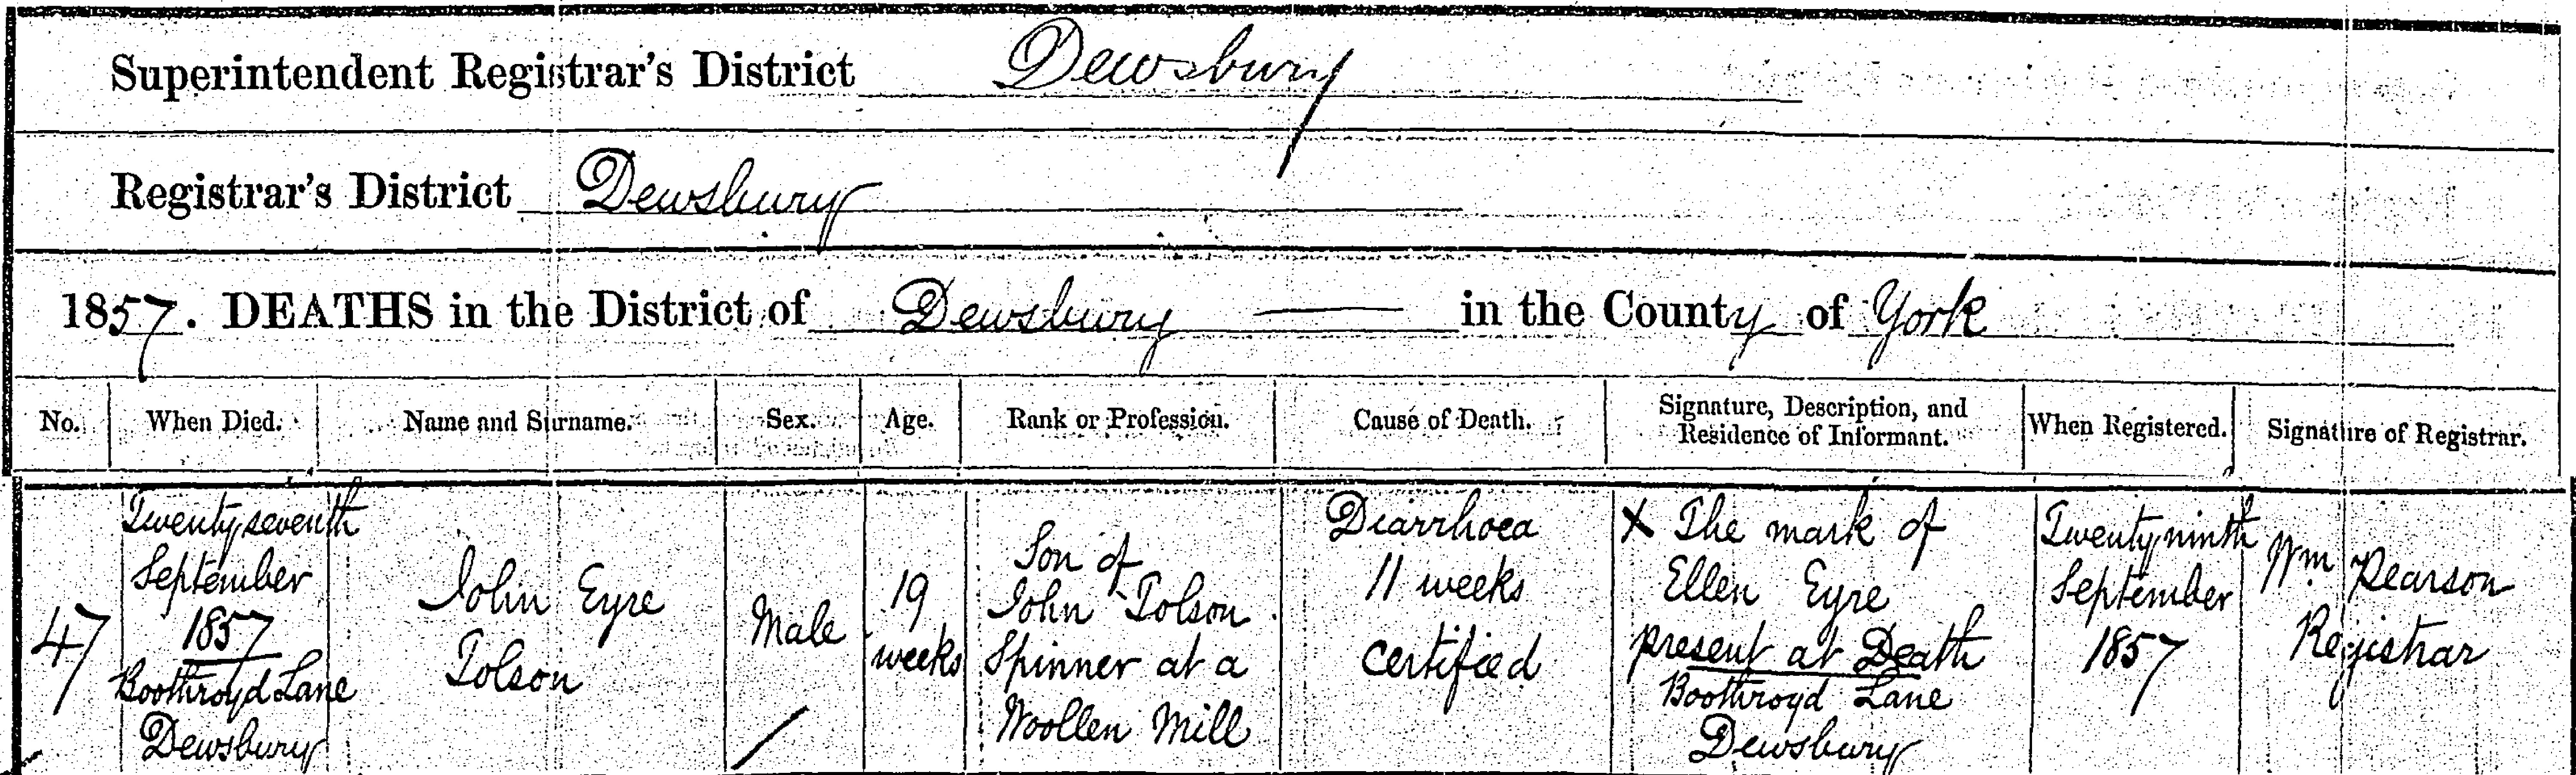 Superintendent Registrar's District Dewsbury
Registrar's District Dewsbury
1857. DEATHS in the District of Dewsbury in the County of York
No.
When Died.
Name and Surname.
Sex.
Age.
Rank or Profession.
Cause of Death.
Signature, Description, and
Residence of Informant.
When Registered.
Signature of Registrar.
47
Twenty seventh
September
1857
Boothroyd Lane
Dewsbury
John Eyre
Tolson
Male
19
weeks
Son of
John Tolson
Spinner at a
Woollen Mill
Diarrhoea
11 weeks
Certified
X The mark of
Ellen Eyre
present at Death
Boothroyd Lane
Dewsbury
Twenty ninth
September
1857
Wm Pearson
Registrar